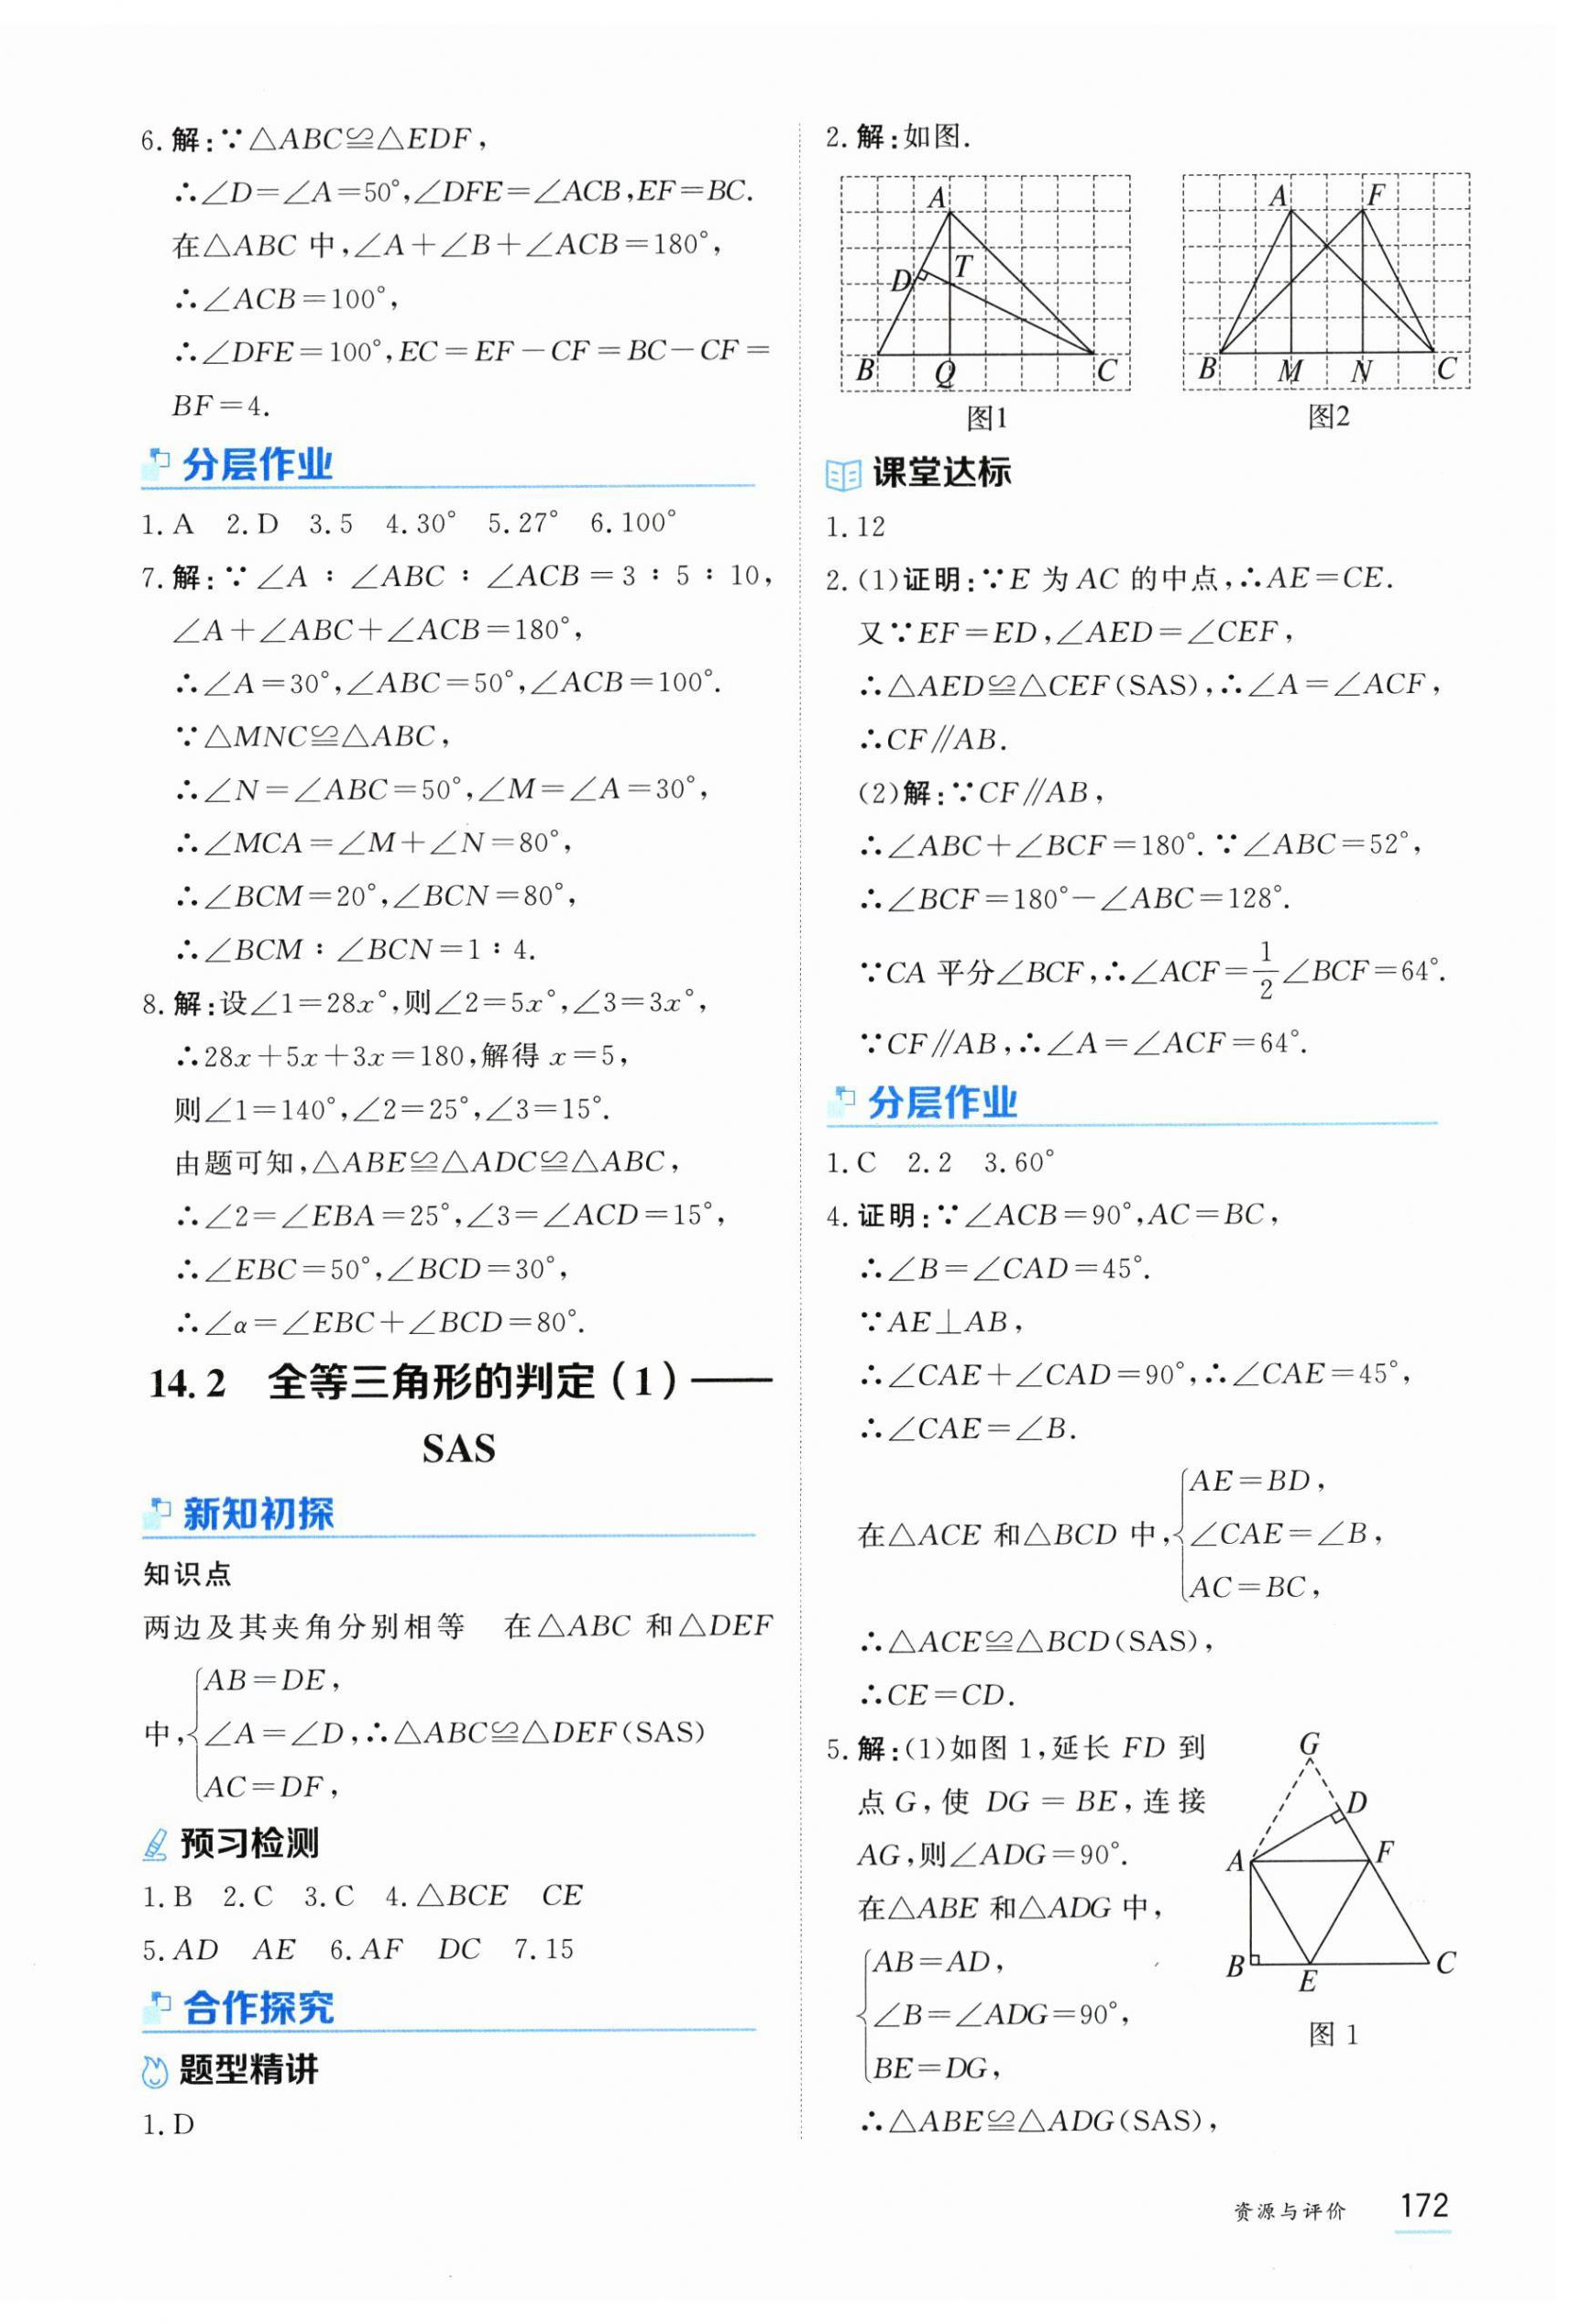 6. 解:∵△ABC≌△EDF,
∴∠D=∠A=50°,∠DFE=∠ACB,EF=BC.
在△ABC 中,∠A+∠B+∠ACB=180°,
∴∠ACB=100°,
∴∠DFE=100°,EC=EF-CF=BC-CF=
BF=4.
分层作业
1. A 2. D 3. 5 4. 30° 5. 27° 6. 100°
7. 解:∵∠A∶∠ABC∶∠ACB=3∶5∶10,
∠A+∠ABC+∠ACB=180°,
∴∠A=30°,∠ABC=50°,∠ACB=100°.
∵△MNC≌△ABC,
∴∠N=∠ABC=50°,∠M=∠A=30°,
∴∠MCA=∠M+∠N=80°,
∴∠BCM=20°,∠BCN=80°,
∴∠BCM∶∠BCN=1∶4.
8. 解:设∠1=28x°,则∠2=5x°,∠3=3x°,
∴28x+5x+3x=180,解得 x=5,
则∠1=140°,∠2=25°,∠3=15°.
由题可知,△ABE≌△ADC≌△ABC,
∴∠2=∠EBA=25°,∠3=∠ACD=15°,
∴∠EBC=50°,∠BCD=30°,
∴∠α=∠EBC+∠BCD=80°.
14. 2 全等三角形的判定(1)——
SAS
新知初探
知识点
两边及其夹角分别相等 在△ABC 和△DEF
AB=DE,
中,∠A=∠D,∴△ABC≌△DEF(SAS)
AC=DF,
预习检测
1. B 2. C 3. C 4. △BCE CE
5. AD AE 6. AF DC 7. 15
合作探究
题型精讲
1. D
2. 解:如图.
A
D T
B Q C
图1
A F
B M N C
图2
课堂达标
1. 12
2. (1)证明:∵E 为 AC 的中点,∴AE=CE.
又∵EF=ED,∠AED=∠CEF,
∴△AED≌△CEF(SAS),∴∠A=∠ACF,
∴CF∥AB.
(2)解:∵CF∥AB,
∴∠ABC+∠BCF=180°.∵∠ABC=52°,
∴∠BCF=180°-∠ABC=128°.
∵CA 平分∠BCF,∴∠ACF=1/2∠BCF=64°.
∵CF∥AB,∴∠A=∠ACF=64°.
分层作业
1. C 2. 2 3. 60°
4. 证明:∵∠ACB=90°,AC=BC,
∴∠B=∠CAD=45°.
∵AE⊥AB,
∴∠CAE+∠CAD=90°,∴∠CAE=45°,
∴∠CAE=∠B.
AE=BD,
在△ACE 和△BCD 中,∠CAE=∠B,
AC=BC,
∴△ACE≌△BCD(SAS),
∴CE=CD.
5. 解:(1)如图 1,延长 FD 到
点 G,使 DG=BE,连接
AG,则∠ADG=90°.
在△ABE 和△ADG 中,
AB=AD,
∠B=∠ADG=90°,
BE=DG,
∴△ABE≌△ADG(SAS),
G
D
A F
B E C
图 1
资源与评价 172